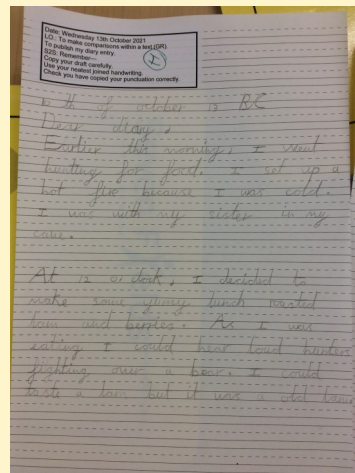 Date: Wednesday 13th October 2021
LO: To make comparisons within a text (GR).
To publish my diary entry.
S2S: Remember—
Copy your draft carefully.
Use your neatest joined handwriting.
Check you have copied your punctuation correctly.
I
th of october 12 BC
Dear diary,
Earlier this morning, I went
hunting for food. I set up a
hot fire because I was cold.
I was with my sister in my
cave.
At 12 o clock, I decided to
make some yummy lunch
lam and berries. As I was
eating I could hear loud hunters
fighting over a bear. I could
taste a lam but it was a old lam